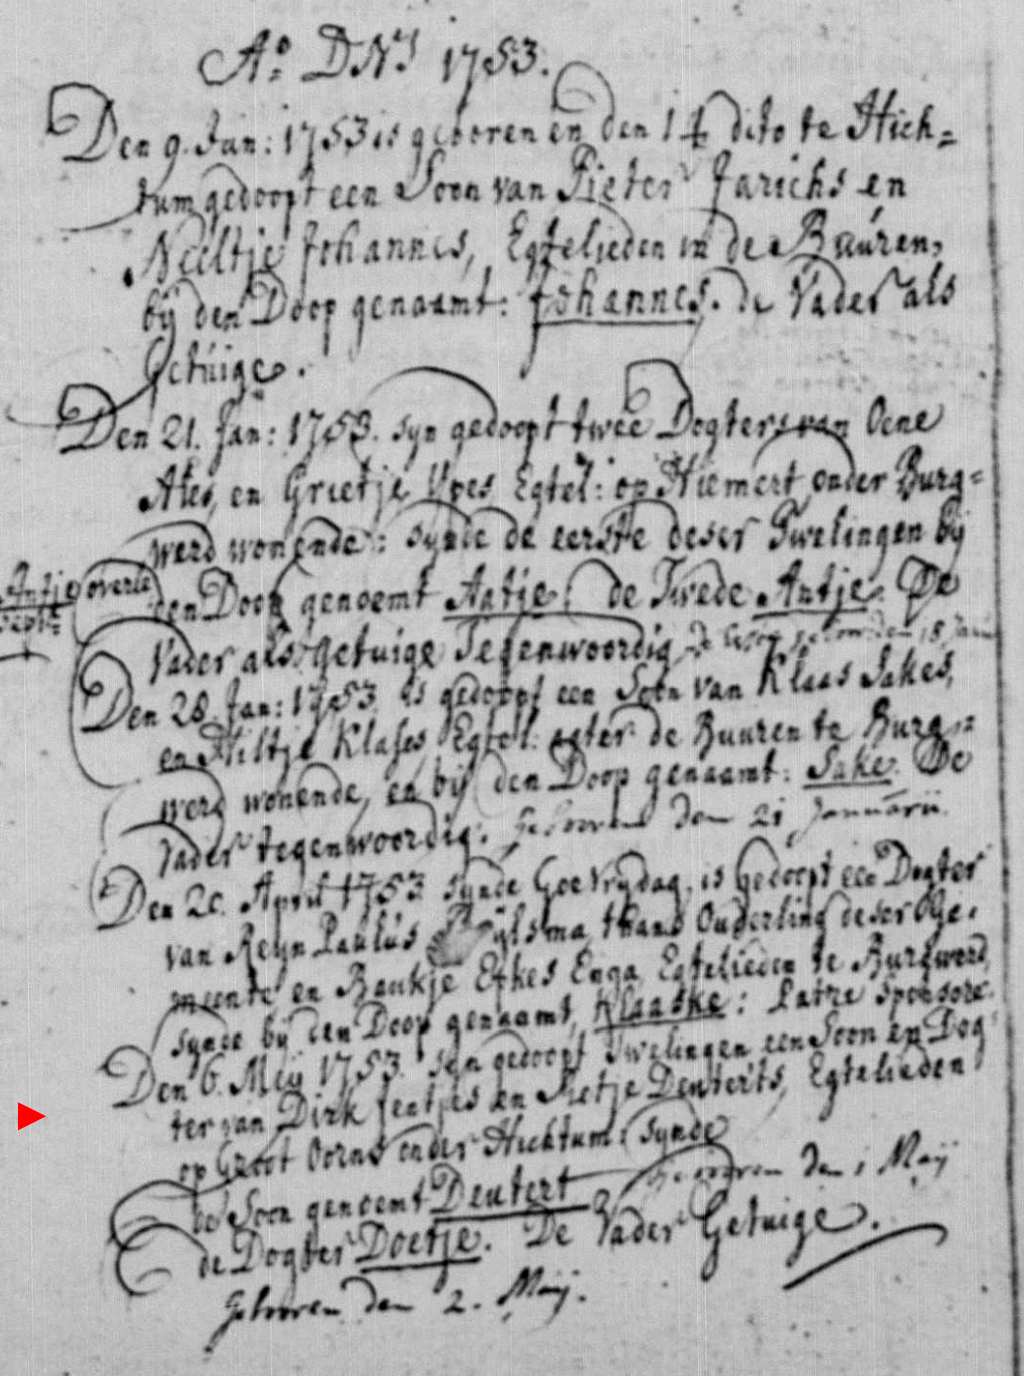 Aº: DNI 1753.
Den 9. Jan: 1753 is gebooren en den 14 dito te Hich=
tum gedoopt een Soon van Pieter Jarichs en
Neeltje Johannes, Egtelieden in de Buúren,
bÿ den Doop genaamt: Johannes. de Vader als
Getúige.
Den 21. Jan: 1753. syn gedoopt twee Dogters van Oene
Ates, en Grietje Ypes Egtel: op Hiemert onder Burg=
werd wonende: synde de eerste deser Twelingen bÿ
Antje overle
den Doop genoemt Aatje, de Twede Antje. De
Sept:
Vader als getuige Tegenwoordig. de 18 Jan
Den 28. Jan: 1753. is gedoopt een Soon van Klaas Sakes,
en Hiltje Klases, Egtel: agter de Buuren te Burg=
werd wonende, en bÿ den Doop genaamt: Sake. De
Vader tegenwoordig. Gebooren den 21 Januarii.
Den 20. April 1753. synde Goe Vrydag, is gedoopt een Dogter
van Reyn Paulús Bÿlsma, thans Ouderling deser Ge=
meente en Baukje Efkes Enga, Egtelieden te Burgwerd,
synde bÿ den Doop genaamt, Klaaske: Patre sponsore.
Den 6. Meÿ 1753. syn gedoopt Twelingen een Soon en Dog=
ter van Dirk Jentjes en Pietje Deuterts, Egtelieden
op Groot Oorns onder Hichtum: synde
de Soon genoemt Deutert gebooren den 1 Maÿ
de Dogter Doetje. De Vader Getuige.
Gebooren den 2. Maÿ.